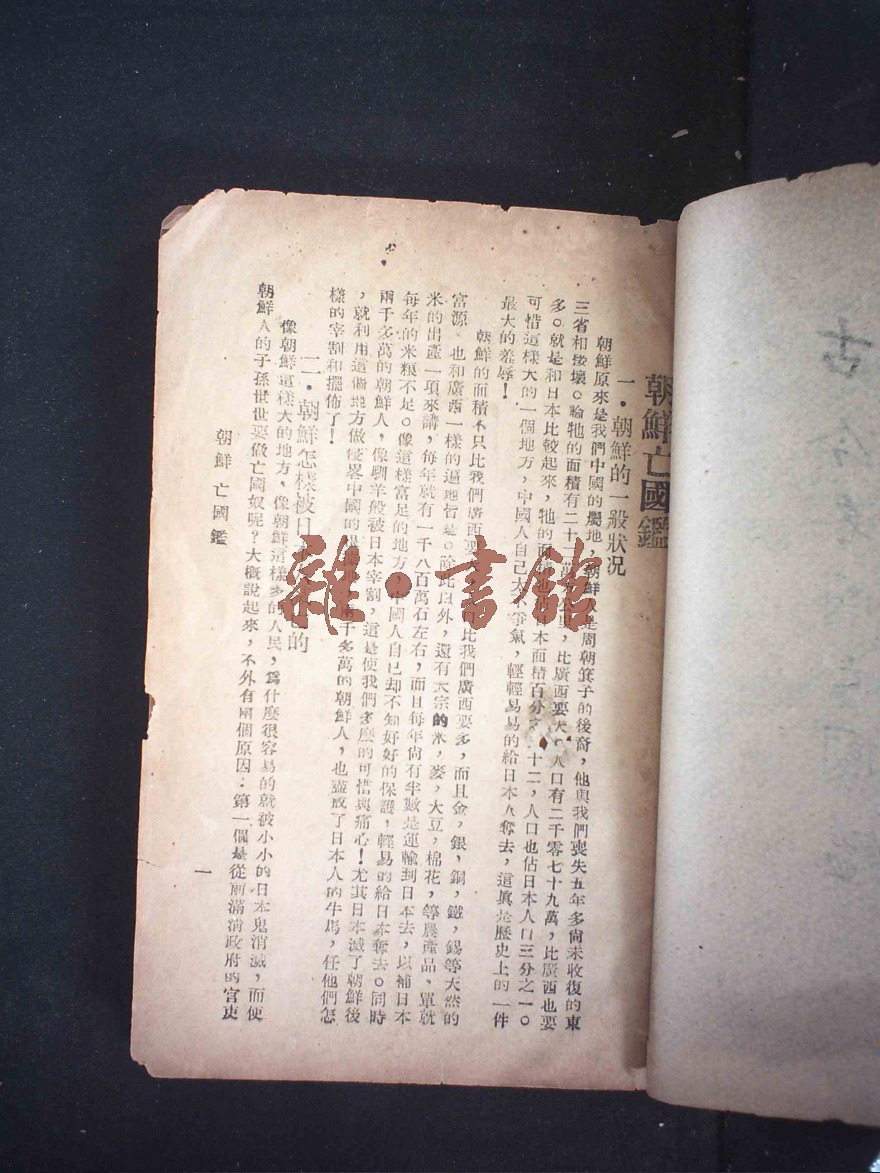 朝鮮亡國鑑
一・朝鮮的一般狀況
朝鮮原來是我們中國的屬地，朝鮮人是周朝箕子的後裔，他與我們喪失五年多尙未收復的東
三省相接壤。論牠的面積有二十二萬方公里，比廣西要大，人口有二千零七十九萬，比廣西也要
多。就是和日本比較起來，牠的面積也日本面積百分之十二，人口也佔日本人口三分之一。
可惜這樣大的一個地方，中國人自己太不爭氣，輕輕易易的給日本人奪去，這眞是歷史上的一件
最大的羞辱！
朝鮮的面積不只比我們廣西要比我們廣西要多，而且金，銀，銅，鐵，錫等天然的
富源 也和廣西一樣的遍地皆是。除此以外，還有大宗的米，麥，大豆，棉花，等農產品，單就
米的出產一項來講，每年就有一千八百萬石左右，而且每年尙有半數是運輸到日本去，以補日本
每年的米粮不足。像這樣富足的地方，中國人自已却不知好好的保護，輕易的給日本奪去。同時
兩千多萬的朝鮮人，像馴羊般被日本宰割，這是使我們多麼的可惜與痛心！尤其日本滅了朝鮮後
，就利用這個地方做侵畧中國的千多萬的朝鮮人，也盡成了日本人的牛馬，任他們怎
樣的宰割和擺佈了！
二・朝鮮怎樣被日的
像朝鮮這樣大的地方，像朝鮮這樣多的人民，爲什麼很容易的就被小小的日本鬼消滅，而使
朝鮮人的子孫世世要做亡國奴呢？大概說起來，不外有兩個原因：第一個是從前滿淸政府的官吏
朝鮮亡國鑑
一
雜・書館